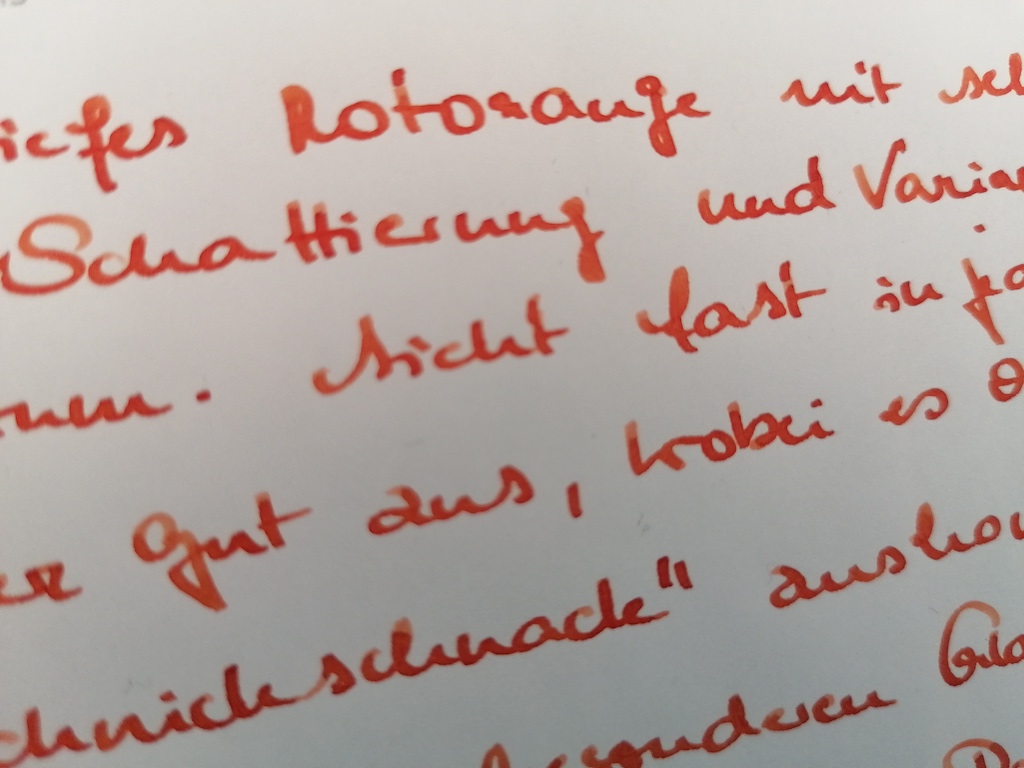 iefes Rotorange mit seh
Schattierung und Varian
onen. Sieht fast in ja
er gut aus, wobei es o
chnickschnack" auskom
besonderen Gla